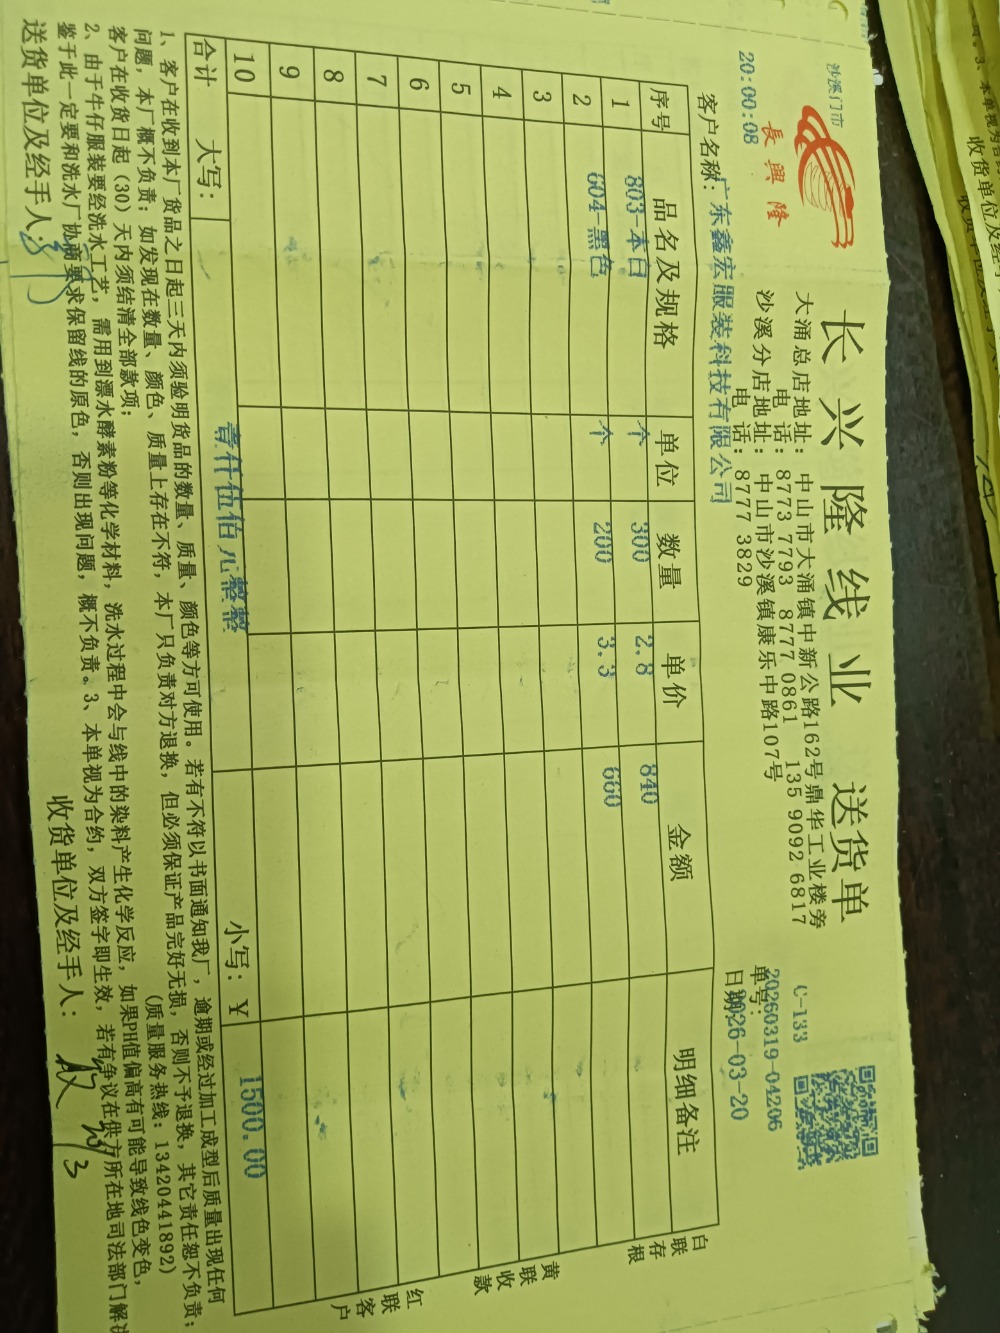 沙溪门市
長興隆
长兴隆线业 送货单
大涌总店地址：中山市大涌镇中新公路162号鼎华工业楼旁
电话：8773 7793 8777 0861 135 9092 6817
沙溪分店地址：中山市沙溪镇康乐中路107号
电话：8777 3829
C-133
单号：20260319-04206
20:00:08
日期：2026-03-20
客户名称：广东鑫宏服装科技有限公司
序号 品名及规格 单位 数量 单价 金额 明细备注
1 803-本白 个 300 2.8 840
2 604-黑色 个 200 3.3 660
3
4
5
6
7
8
9
10
合计 大写：壹仟伍佰元整整 小写：￥ 1500.00
白联存根
黄联收款
红联客户
1、客户在收到本厂货品之日起三天内须验明货品的数量、质量、颜色等方可使用。若有不符以书面通知我厂，逾期或经过加工成型后质量出现任何
问题，本厂概不负责；如发现在数量、颜色、质量上存在不符，本厂只负责对方退换，但必须保证产品完好无损，否则不予退换，其它责任恕不负责；
客户在收货日起（30）天内须结清全部款项； （质量服务热线：13420441892）
2、由于牛仔服装要经洗水工艺，需用到漂水酵素粉等化学材料，洗水过程中会与线中的染料产生化学反应，如果PH值偏高有可能导致线色变色，
鉴于此一定要和洗水厂协商要求保留线的原色，否则出现问题，概不负责。3、本单视为合约，双方签字即生效，若有争议在供方所在地司法部门解决
送货单位及经手人： 收货单位及经手人：
3、本单视为合
收货单位及经
收货单位及经